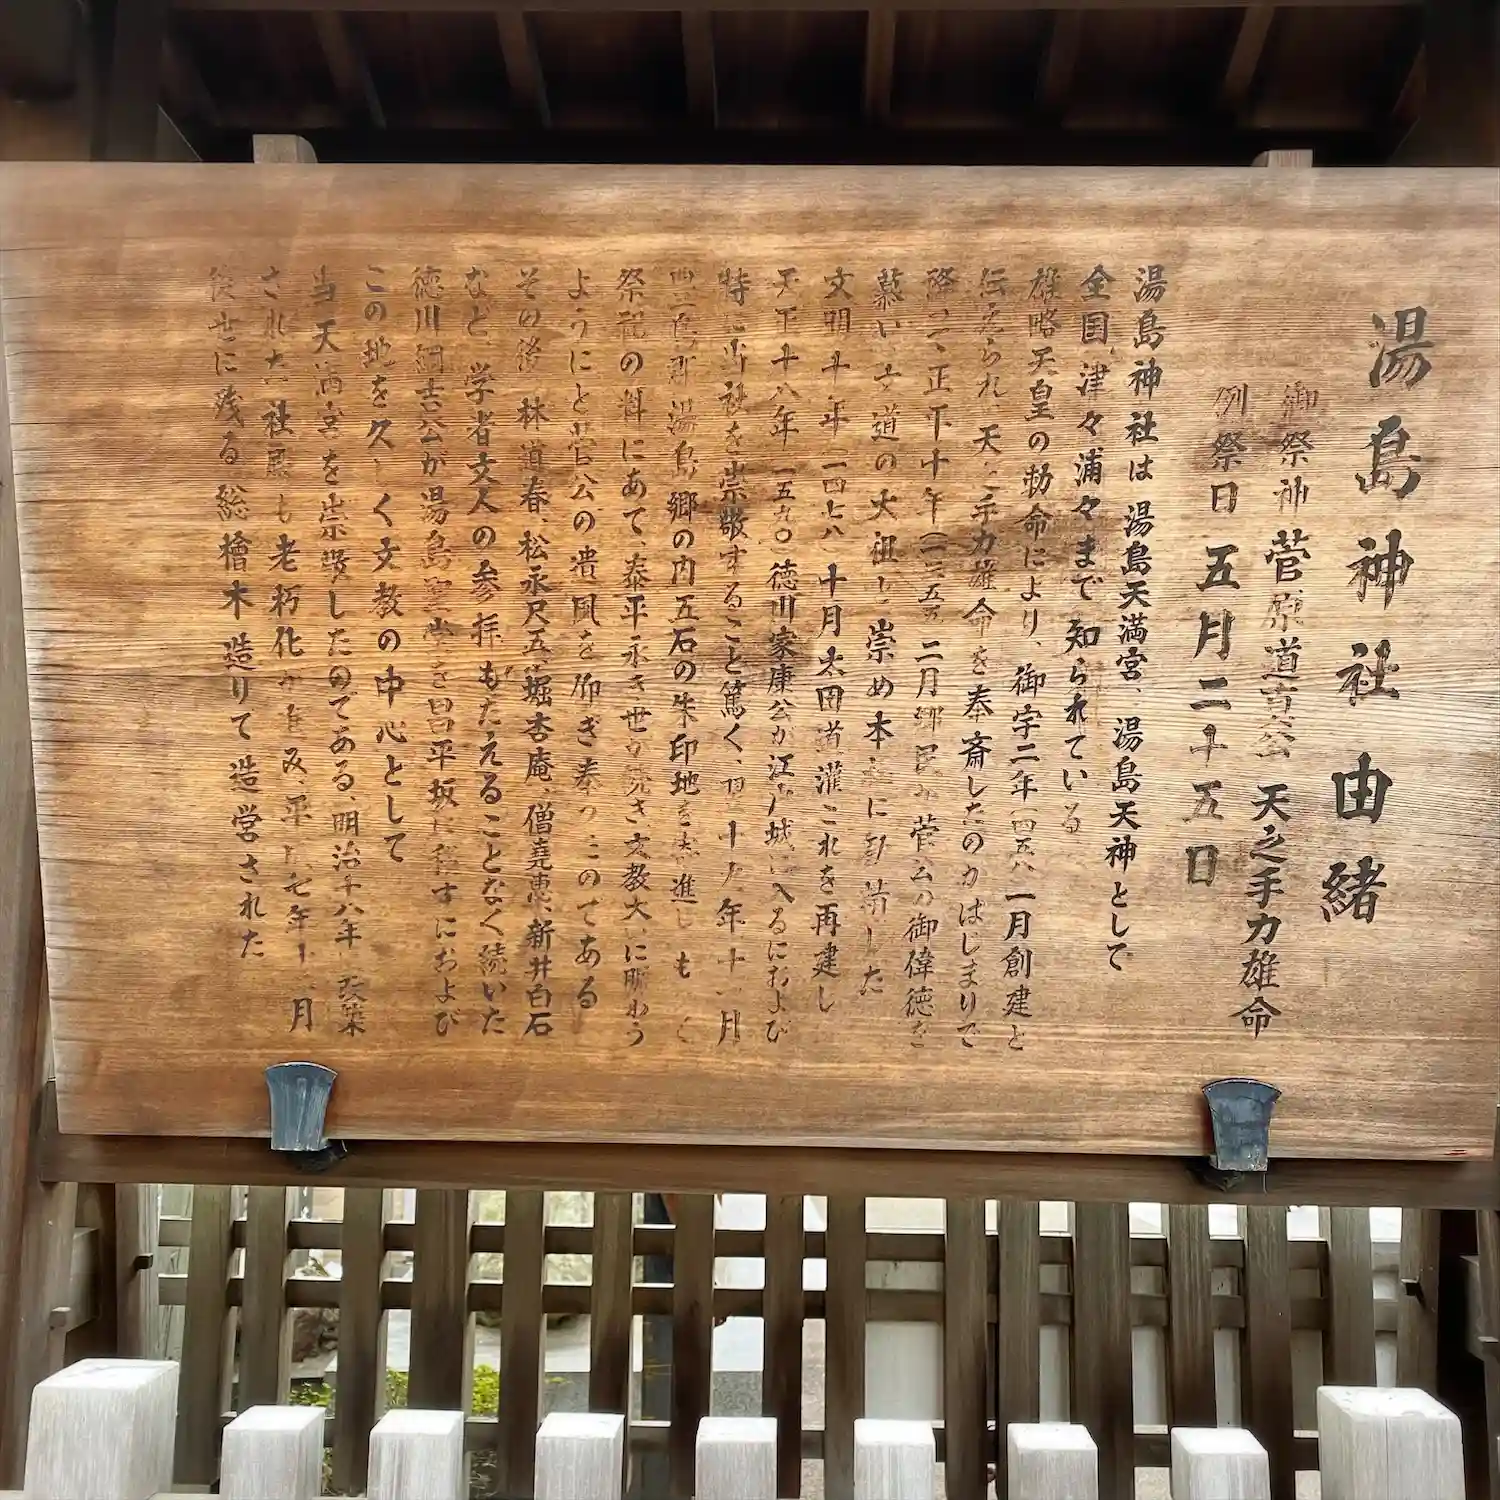 湯島神社由緒
御祭神 菅原道真公 天之手力雄命
例祭日 五月二十五日
湯島神社は 湯島天満宮、湯島天神として
全国津々浦々まで知られている
雄略天皇の勅命により、御宇二年 四五八 一月創建と
伝えられ、天之手力雄命を奉斎したのがはじまりで
降って、正平十年(一三五五 二月郷民が菅公の御偉徳を
慕い 文道の大祖と崇め本社に勧請した
文明十年 一四七八 十月太田道灌これを再建し
天正十八年 一五九〇 徳川家康公が江戸城に入るにおよび
特に当社を崇敬すること篤く、翌十九年十一月
豊島郡湯島郷の内五石の朱印地を寄進し もって
祭祀の料にあて、泰平永き世が続き文教大いに賑わう
ようにと菅公の遺風を仰ぎ奉ったのである
その後 林道春、松永尺五、堀杏庵、僧堯恵、新井白石
など、学者文人の参拝もたえることなく続いた
徳川綱吉公が湯島聖堂を昌平坂に移すにおよび
この地を久しく文教の中心として
当天満宮を崇敬したのである、明治十八年 改築
された社殿も老朽化が進み、平成七年十二月
後世に残る総檜木造りで造営された